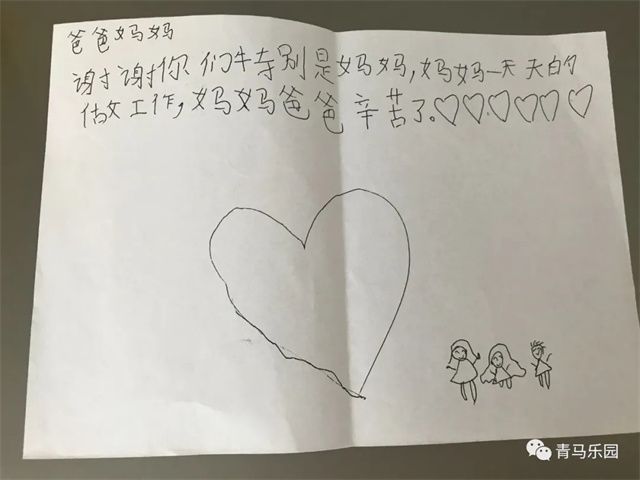 爸爸妈妈
谢谢你们特别是妈妈,妈妈一天天的
做工作,妈妈爸爸辛苦了。♡♡♡♡♡♡
青马乐园